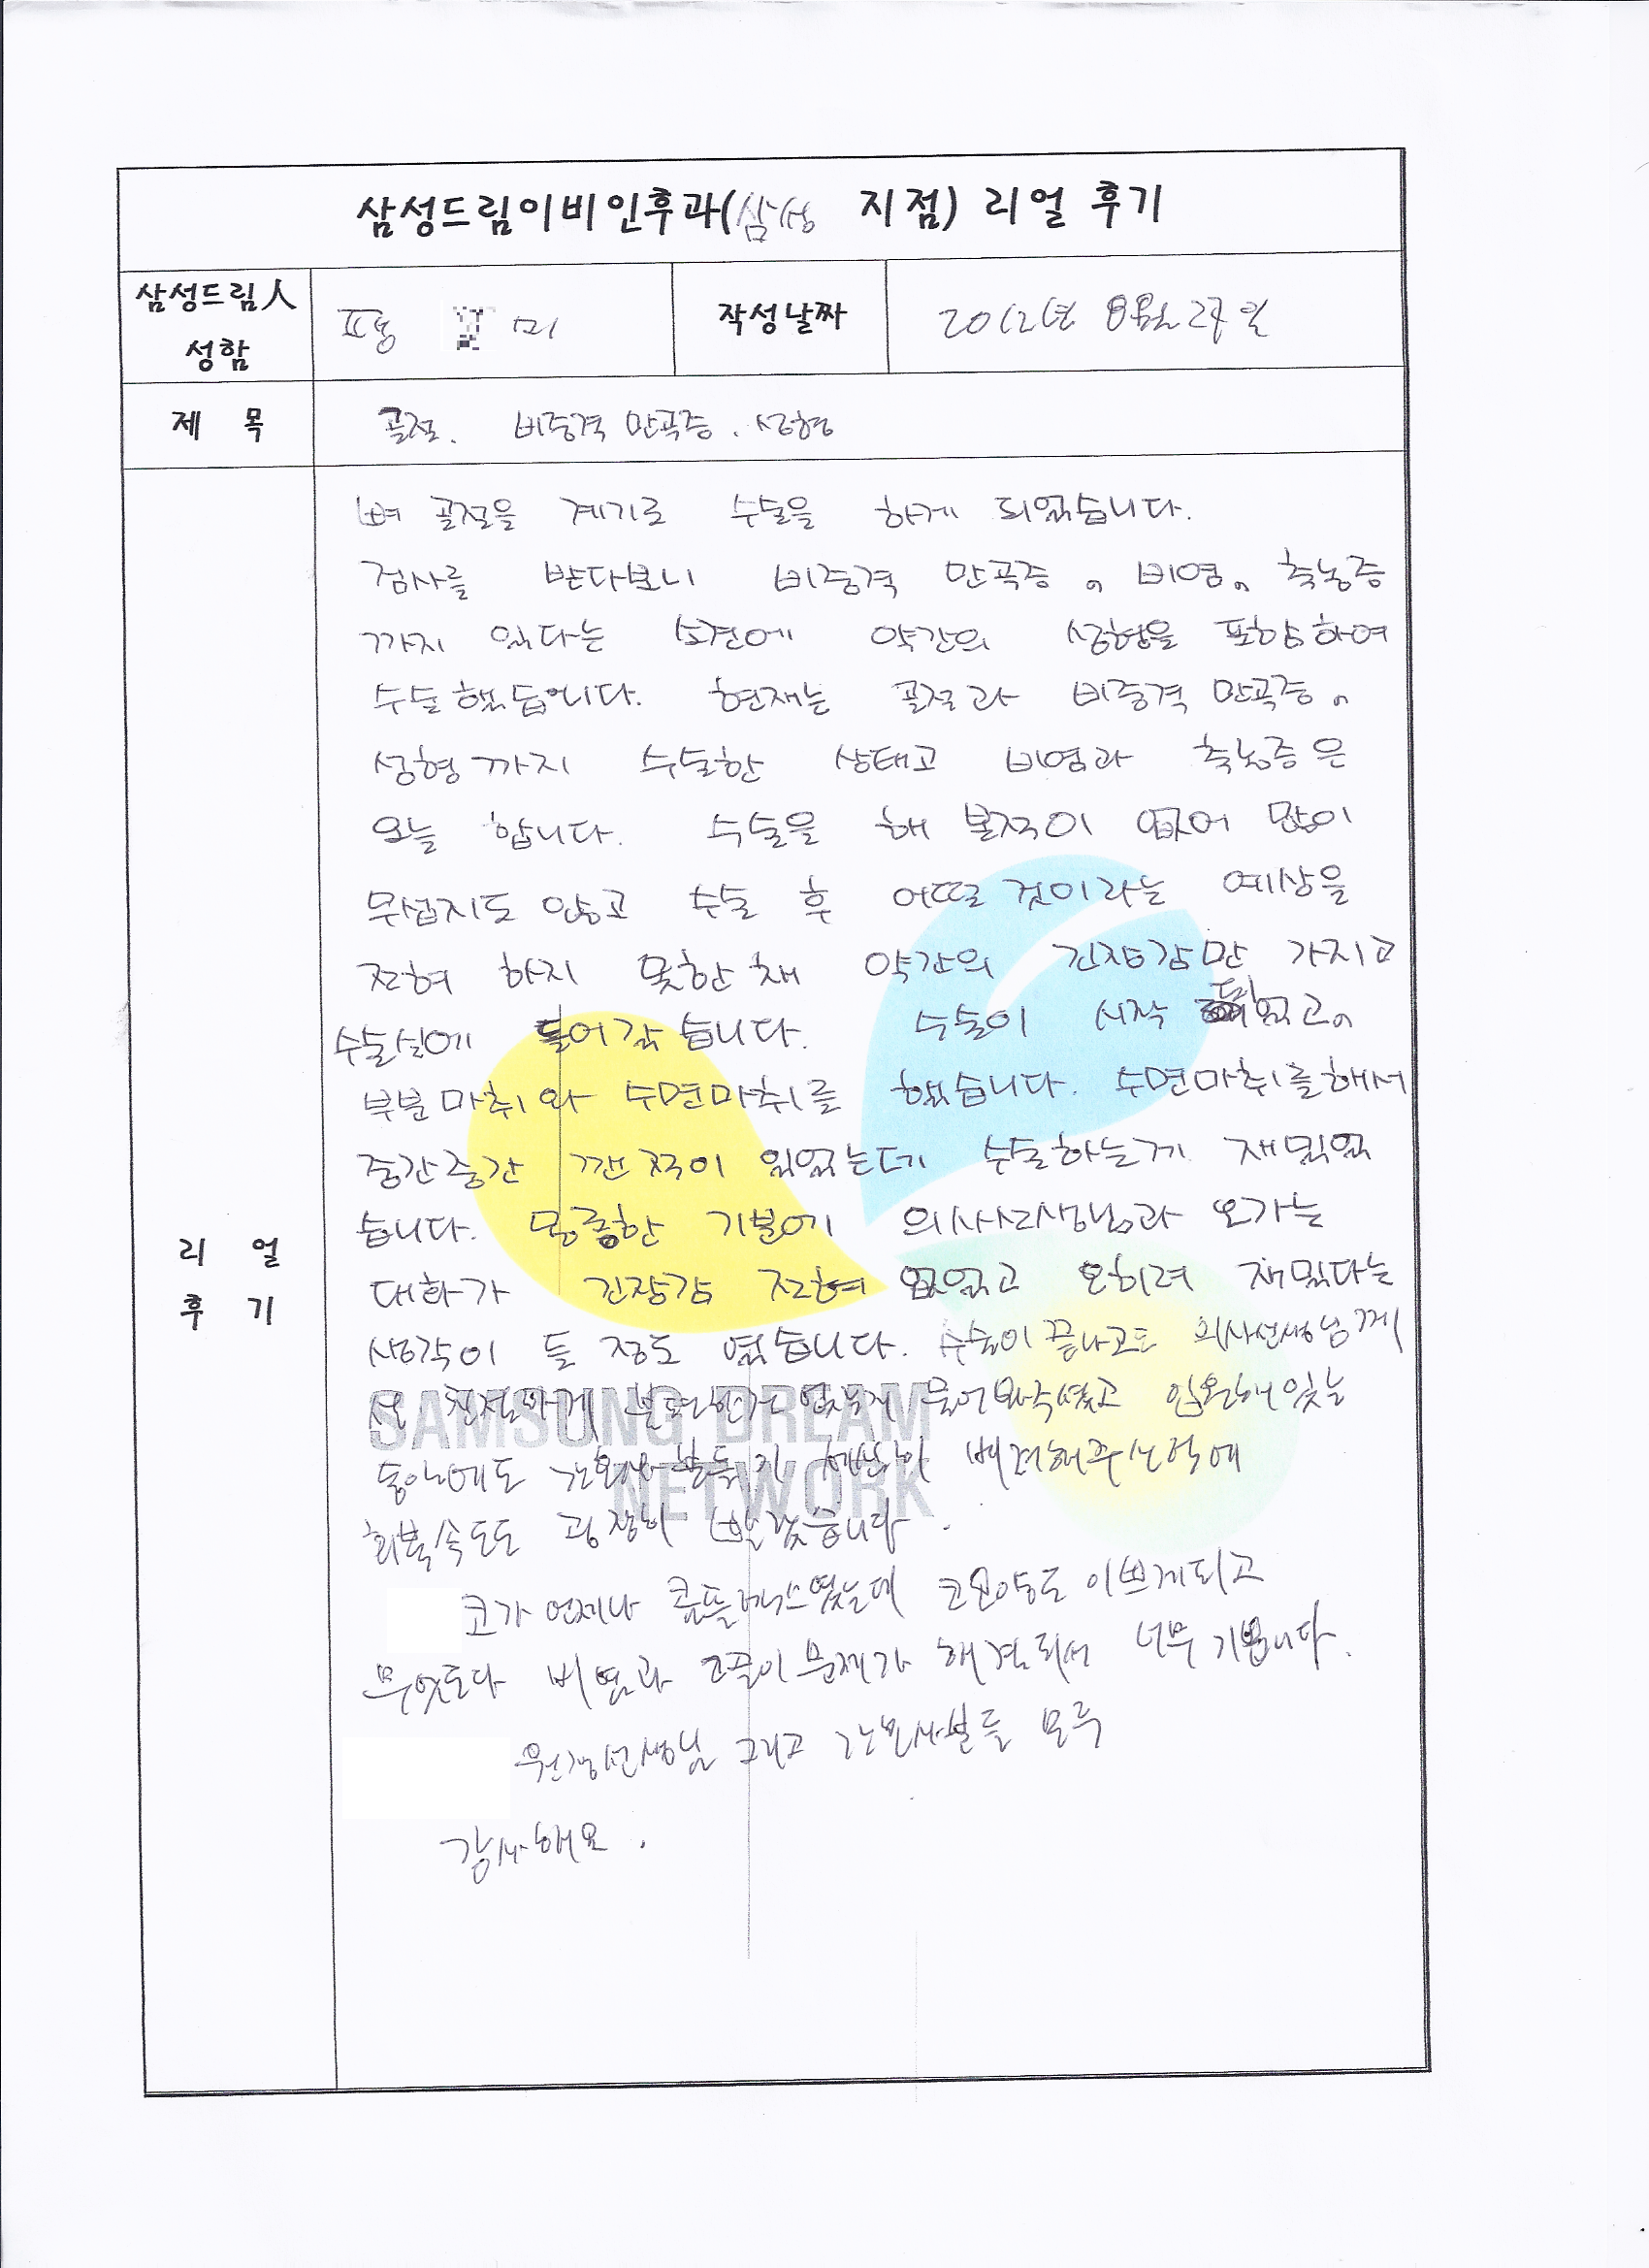 삼성드림이비인후과(삼성 지점) 리얼 후기
삼성드림人
성함
표 미
작성날짜
2012년 8월 27일
제 목
골절. 비중격 만곡증. 성형
리 얼
후 기
뼈 골절을 계기로 수술을 하게 되었습니다.
검사를 받다보니 비중격 만곡증, 비염, 축농증
까지 있다는 소견에 약간의 성형을 포함하여
수술했습니다. 현재는 골절과 비중격 만곡증,
성형까지 수술한 상태고 비염과 축농증은
오늘 합니다. 수술을 해 본적이 없어 많이
무섭지도 않고 수술 후 어떨 것이라는 예상을
전혀 하지 못한채 약간의 긴장감만 가지고
수술실에 들어갔습니다. 수술이 시작 되었고,
부분마취와 수면마취를 했습니다. 수면마취를해서
중간중간 깬 적이 있었는데 수술하는게 재밌었
습니다. 몽롱한 기분에 의사선생님과 오가는
대화가 긴장감 전혀 없었고 오히려 재밌다는
생각이 들 정도 였습니다. 수술이 끝나고도 의사선생님께
서 친절하게 불편한거 없는지 물어봐주셨고 입원해있는
동안에도 간호사분들이 배려해주신덕에
회복속도도 굉장히 빨랐습니다.
코가 언제나 콤플렉스였는데 코모양도 이쁘게되고
무엇보다 비염과 코골이문제가 해결되서 너무 기쁩니다.
원장선생님 그리고 간호사분들 모두
감사해요.
SAMSUNG DREAM
NETWORK